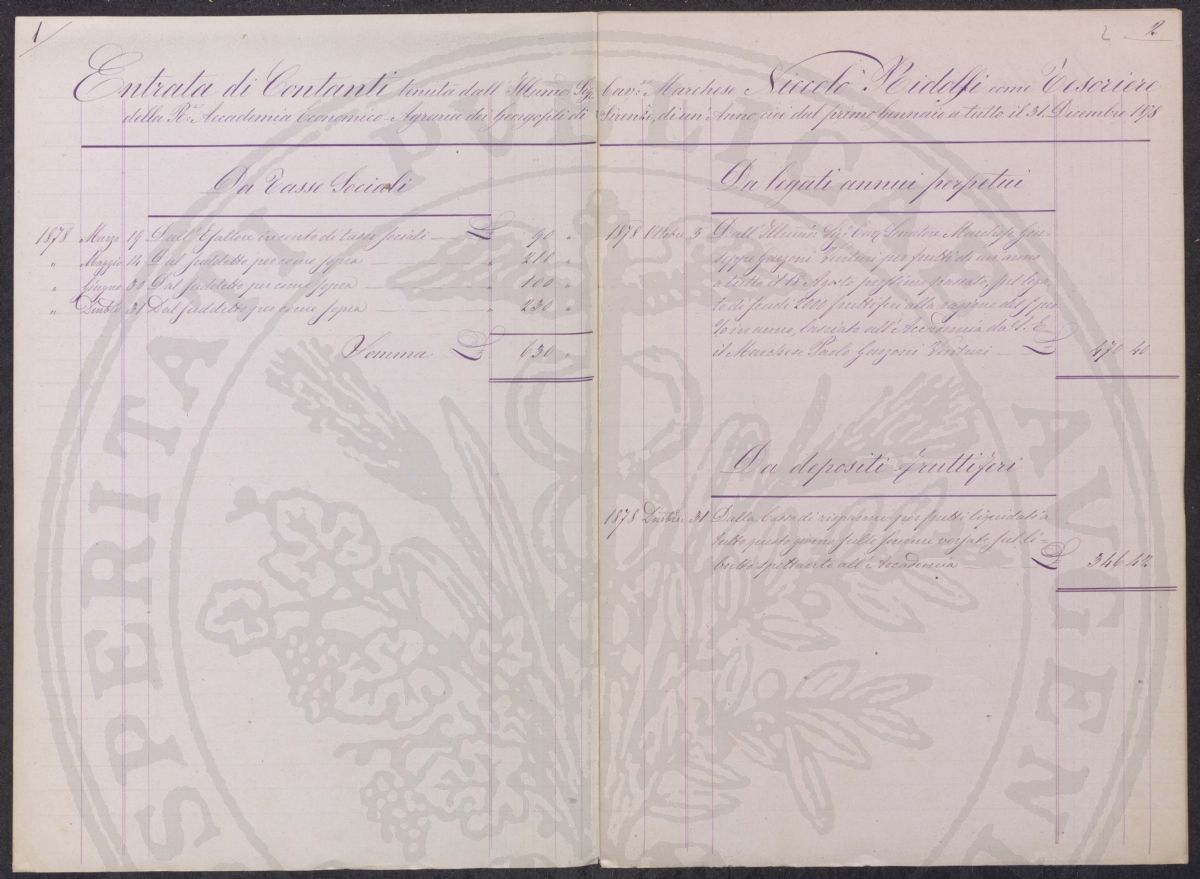 1
2 2
Entrata di Contanti tenuta dall' Illumo Sig. Cav. Marchese Niccolò Ridolfi come Tesoriere
della Rª Accademia Economico-Agraria dei Georgofili di Firenze, di un Anno cioè dal primo Gennaio a tutto il 31 Decembre 1878
Da Tasse Sociali
1878 Marzo 19 Dall' Esattore in conto di tasse sociali £ 90 "
" Maggio 14 Dal suddetto per come sopra " 210 "
" Giugno 30 Dal suddetto per come sopra " 100 "
" Dicmbre 31 Dal suddetto per come sopra " 230 "
Somma £ 630 "
Da legati annui perpetui
1878 Ottobre 3 Dall' Illumo Sigr Cav Senatore Marchese Giu-
seppe Garzoni Venturi per frutti di un anno
a tutto il 15 Agosto prossimo passato, sul lega-
to di scudi fruttiferi alla ragione del
in anno, lasciato all' Accademia da S. E.
il Marchese Paolo Garzoni Venturi £ 470 40
Da depositi fruttiferi
1878 Dicmbre 31 Dalla Cassa di risparmio per frutti liquidati a
tutto questo giorno sulle somme versate sul li-
bretto spettante all' Accademia £ 346 42
PROSPERITATI PUBLICAE AUGENDAE